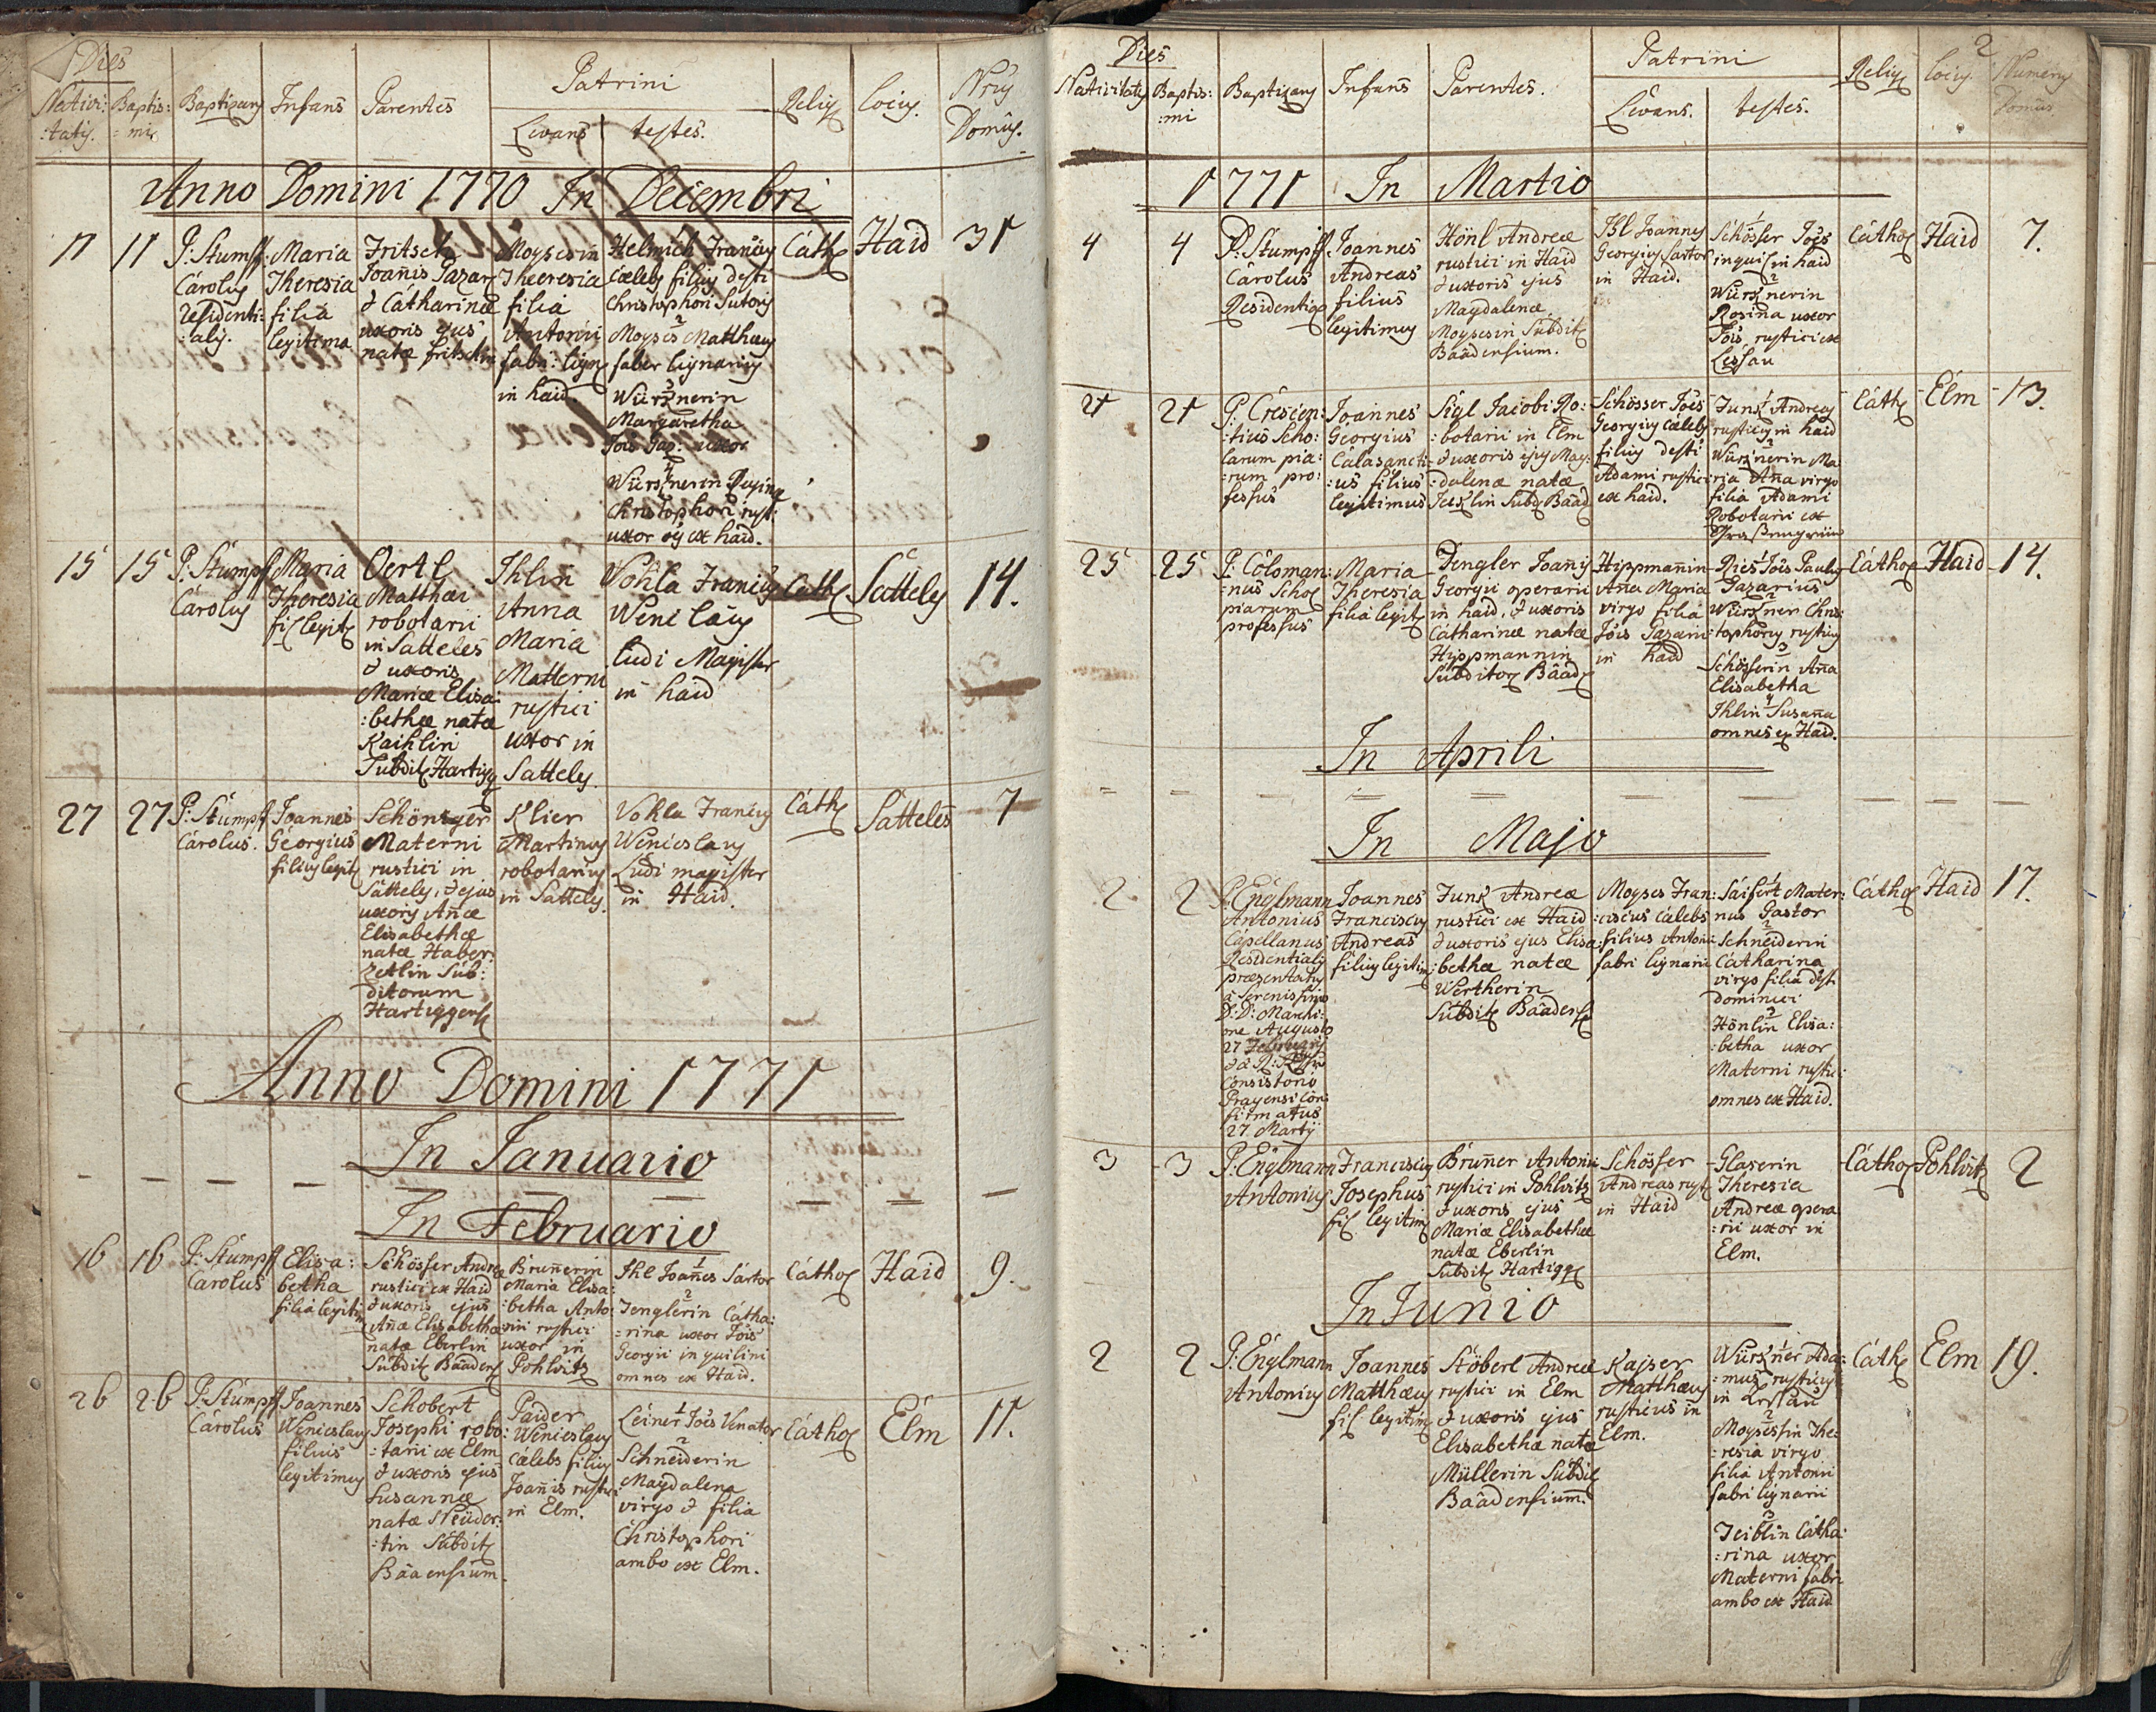 Dies
Nativi: Baptis: Baptizans Infans Parentes Patrini Relig Locus Nrus
:tatis. :mi Levans testes. Domûs.
Anno Domini 1770 In Decembri
11 11 P: Stumpf
Carolus
residenti:
:alis.
Maria
Theresia
filia
legitima
Fritsch
Joanis
& Catharinæ
uxoris ejus
natæ Fritschin
Moysesin
Theresia
filia
Antonii
fabri: lign
in haid.
Helmich Franciscus
Cælebs filius defti
Christophori Sutoris
2
Moyses Matthæus
faber lignarius
3
Würznerin
Margaretha
uxor
4
Würznerin Regina
Christophori rust:
uxor ex haid.
Cath Haid 31
15 15 P. Stumpf
Carolus
Maria
Theresia
fil legit
Oertl
Matthæi
robotarii
in Satteles
& uxoris
Mariæ Elisa:
:bethæ natæ
Kaihlin
Subdit Hartigg
Ihlin
Anna
Maria
Matterni
rustici
uxor in
Satteles
Vohla Franciscus
Wenceslaus
Ludi Magister
in haid
Cath Satteles 14.
27 27 P: Stumpf
Carolus.
Joannes
Georgius
filius legit
Schöniger
Materni
rustici in
Satteles, & ejus
uxoris Añæ
Elisabethæ
natæ Haber:
zetlin Sub:
ditorum
Hartiggens
Klier
Martinus
robotarius
in Satteles
Vohla Franciscus
Wenceslaus
Ludi magister
in Haid.
Cath Satteles 7
Anno Domini 1771
In Januario
In Februario
16 16 P: Stumpf
Carolus
Elisa:
betha
filia legiti
Schösser Andreæ
rustici ex Haid
& uxoris ejus
Añæ Elisabethæ
natæ Eberlin
Subdit Baadens
Bruñerin
Maria Elisa:
:betha Anto:
nii rustici
uxor in
Pohlvitz
1
Ihl Joañes Sartor
2
Tenglerin Catha:
:rina uxor Jois
Georgii inquilini
omnes ex Haid.
Cathol Haid 9.
26 26 P: Stumpf
Carolus
Joannes
Wenceslaus
filius
legitimus
Schobert
Josephi robo:
:tarii ex Elm
& uxoris ejus
Susannæ
natæ
:tin Subdit
Baaensium.
Paider
Wenceslaus
cælebs filius
Joañis rustici
in Elm.
1
Leiner Jois Venator
2
Schneiderin
Magdalena
virgo & filia
Christophori
ambo ex Elm.
Cathol Elm 11.
2
Dies
Nativitatis Baptis: Baptizans Infans Parentes. Patrini Relig Locus Numerus
:mi Levans. testes. Domûs
1771 In Martio
4 4 P: Stumpf
Carolus
Residential
Joannes
Andreas
filius
legitimus
Hönl Andreæ
rustici in Haid
& uxoris ejus
Magdalenæ
Moysesin Subdit
Baadensium.
Ihl Joannes
Georgius Sartor
in Haid.
1
Schösser Jois
inquil in haid
2
Würznerin
Rosina uxor
Jois rustici ex
Lessau
Cathol Haid 7.
21 21 P: Crescen:
:tius Scho:
larum pia:
:rum pro:
fessus
Joannes
Georgius
Calasancti:
:us filius
legitimus
Sigl Jacobi Ro:
:botarii in Elm
& uxoris ejus Mag:
:dalenæ natæ
Subd Baad
Schösser Jois
Georgius cælebs
filius defti
Adami rustici
ex haid.
1
Junk Andreas
rusticus in haid
2
Würznerin Ma
:ria Aña virgo
filia Adami
Robotarii ex
Cath Elm 13.
25 25 P: Coloman:
:nus Schol
piarum
professus
Maria
Theresia
filia legit
Dengler Joañis
Georgii operarii
in haid, & uxoris
Catharinæ natæ
Hippmannin
Subditor Baad
Hippmanin
Aña Maria
virgo filia
Jois
in haid
1
Ries Jois Paulus
2
Würzner Chris
:tophorus rusticus
3
Schösserin Aña
Elisabetha
4
Ihlin Susaña
omnes ex Haid.
Cathol Haid 14.
In Aprili
In Majo
2 2 P. Englmann
Antonius
Capellanus
Residentialis
præsentatus
à Serenissimo
D: D: Marchi:
one Augusto
27 Februarij
Consistorio
Pragensi con:
firmatus
27 Martij
Joannes
Franciscus
Andreas
filius legitim
Junk Andreæ
rustici ex Haid
& uxoris ejus Elisa:
:bethæ natæ
Wertherin
Subdit Baadens
Moyses Fran:
:ciscus cælebs
filius Antonii
fabri lignarii
1
Saifert Mater:
nus Pastor
2
Schneiderin
Catharina
virgo filia dft
dominici
3
Hönlin Elisa:
:betha uxor
Materni rustici:
omnes ex Haid.
Cathol Haid 17.
3 3 P: Englmann
Antonius
Franciscus
Josephus
fil legitim
Bruñer Antonii
rustici in Pohlvitz
& uxoris ejus
Mariæ Elisabethæ
natæ Eberlin
Subdit Hartigg
Schösser
Andreas rust
in Haid
Glaserin
Theresia
Andreæ opera
:rii uxor in
Elm.
Cathol Pohlvitz 2
In Junio
2 2 P: Englmann
Antonius
Joannes
Matthæus
fil legitim
Stöberl Andreæ
rustici in Elm
& uxoris ejus
Elisabethæ natæ
Müllerin Subdit
Baadensium.
Kajser
Matthæus
rusticus in
Elm.
1
Würzner Ada:
:mus rusticus
in
2
Moysessin The:
:resia virgo
filia Antonii
fabri lignarii
3
Teiblin Catha:
:rina uxor
Materni fabri
ambo ex Haid
Cath Elm 19.